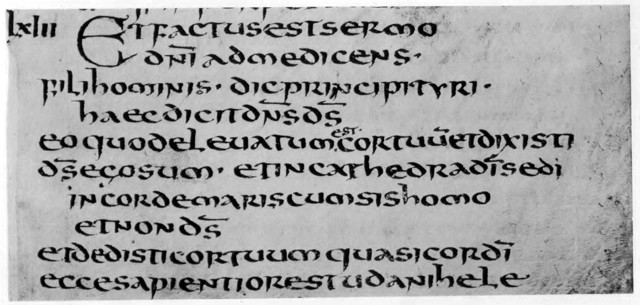 lxiii Etfactusestsermo
dn̄i admedicens·
filihominis· dicprincipityri·
haecdicitdn̄sds̄
eoquodeleuatum est cortuūetdixisti
ds̄egosum· etincathedradīsedi
incordemariscumsishomo
etnonds̄
etdedisticortuumquasicordī
eccesapientiorestudanihele